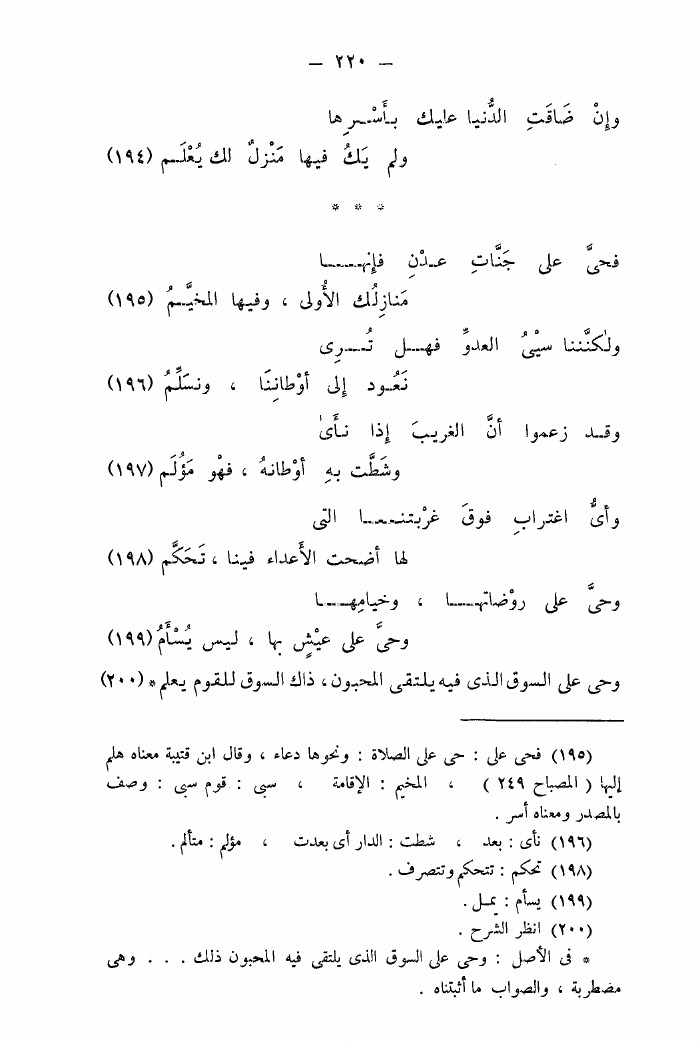 — ٢٢٠ —
وإِنْ ضَاقَتِ الدُّنيا عليك بـأَسْـرِها
ولم يَكُ فيها مَنْزِلٌ لك يُعْلَـم (١٩٤)
* * *
فحىَّ على جَنَّاتِ عـدْنِ فإِنهـا
مَنازِلُك الأُولى ، وفيها المخيَّـمُ (١٩٥)
ولٰكنَّننا سبْىُ العدوِّ فهـل تُـرِى
نَعُـود إلى أوْطانِنَا ، ونسَلِّمُ (١٩٦)
وقـد زعموا أنَّ الغريبَ إِذا نـأَىٰ
وشَطَّت بهِ أوْطانهُ ، فهْو مَؤُلَم (١٩٧)
وأىُّ اغترابِ فوقَ غرْبتنـا التى
لها أضحت الأَعداء فينا ، تَحَكَّم (١٩٨)
وحىَّ على روْضاتهـا ، وخيامِهـا
وحىَّ على عيْشٍ بها ، ليس يُسْأَمُ (١٩٩)
وحى على السوق الذى فيه يلتقى المحبون ، ذاك السوق للقوم يعلم * (٢٠٠)
(١٩٥) فحى على : حى على الصلاة : ونحوها دعاء ، وقال ابن قتيبة معناه هلم
إليها ( المصباح ٢٤٩ ) ، المخيم : الإقامة ، سبى : قوم سبى : وصف
بالمصدر ومعناه أسر .
(١٩٦) نأى : بعد ، شطت : الدار أى بعدت ، مؤلم : متألم .
(١٩٨) تحكم : تتحكم وتتصرف .
(١٩٩) يسأم : يمل .
(٢٠٠) انظر الشرح .
* فى الأصل : وحى على السوق الذى يلتقى فيه المحبون ذلك . . . وهى
مضطربة ، والصواب ما أثبتناه .